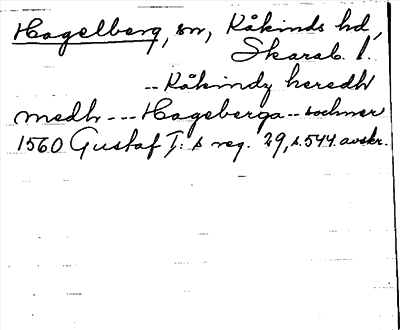 Hagelberg, sn, Kåkinds hd,
Skarab. l.
-- Kåkindz heredh
medh --- Hageberga -- sochner
1560 Gustaf I:s reg. 29, s. 544. avskr.